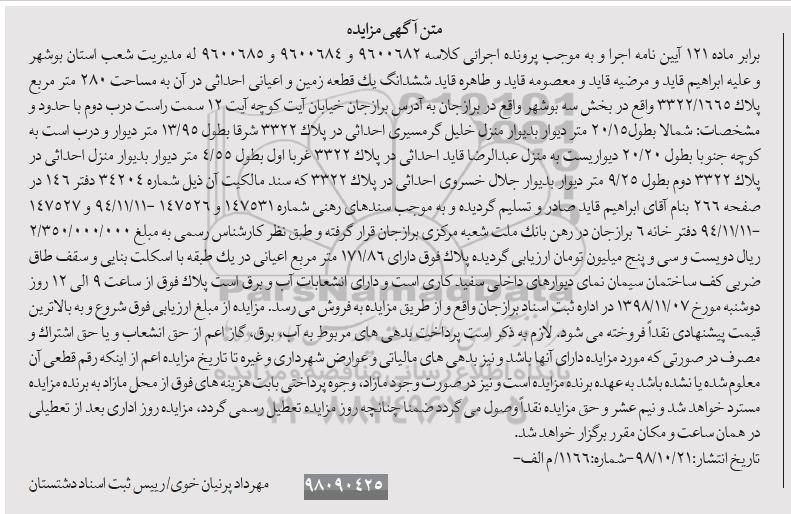 متن آگهی مزایده
برابر ماده ۱۲۱ آیین نامه اجرا و به موجب پرونده اجرائی کلاسه ۹۶۰۰۶۸۲ و ۹۶۰۰۶۸۴ و ۹۶۰۰۶۸۵ له مدیریت شعب استان بوشهر
و علیه ابراهیم قاید و مرضیه قاید و معصومه قاید و طاهره قاید ششدانگ یک قطعه زمین و اعیانی احداثی در آن به مساحت ۲۸۰ متر مربع
پلاک ۳۳۲۲/۱۶۶۵ واقع در بخش سه بوشهر واقع در برازجان به آدرس برازجان خیابان آیت کوچه آیت ۱۲ سمت راست درب دوم با حدود و
مشخصات: شمالا بطول ۲۰/۱۵ متر دیوار بدیوار منزل خلیل گرمسیری احداثی در پلاک ۳۳۲۲ شرقا بطول ۱۳/۹۵ متر دیوار و درب است به
کوچه جنوبا بطول ۲۰/۲۰ دیواریست به منزل عبدالرضا قاید احداثی در پلاک ۳۳۲۲ غربا اول بطول ۴/۵۵ متر دیوار بدیوار منزل احداثی در
پلاک ۳۳۲۲ دوم بطول ۹/۲۵ متر دیوار بدیوار جلال خسروی احداثی در پلاک ۳۳۲۲ که سند مالکیت آن ذیل شماره ۳۴۲۰۴ دفتر ۱۴۶ در
صفحه ۲۶۶ بنام آقای ابراهیم قاید صادر و تسلیم گردیده و به موجب سندهای رهنی شماره ۱۴۷۵۳۱ و ۱۴۷۵۲۶ -۹۴/۱۱/۱۱ و ۱۴۷۵۲۷
-۹۴/۱۱/۱۱ دفتر خانه ۶ برازجان در رهن بانک ملت شعبه مرکزی برازجان قرار گرفته و طبق نظر کارشناس رسمی به مبلغ ۲/۳۵۰/۰۰۰/۰۰۰
ریال دویست و سی و پنج میلیون تومان ارزیابی گردیده پلاک فوق دارای ۱۷۱/۸۶ متر مربع اعیانی در یک طبقه با اسکلت بنایی و سقف طاق
ضربی کف ساختمان سیمان نمای دیوارهای داخلی سفید کاری است و دارای انشعابات آب و برق است پلاک فوق از ساعت ۹ الی ۱۲ روز
دوشنبه مورخ ۱۳۹۸/۱۱/۰۷ در اداره ثبت اسناد برازجان واقع و از طریق مزایده به فروش می رسد. مزایده از مبلغ ارزیابی فوق شروع و به بالاترین
قیمت پیشنهادی نقداً فروخته می شود. لازم به ذکر است پرداخت بدهی های مربوط به آب، برق، گاز اعم از حق انشعاب و یا حق اشتراک و
مصرف در صورتی که مورد مزایده دارای آنها باشد و نیز بدهی های مالیاتی و عوارض شهرداری و غیره تا تاریخ مزایده اعم از اینکه رقم قطعی آن
معلوم شده یا نشده باشد به عهده برنده مزایده است و نیز در صورت وجود مازاد، وجوه پرداختی بابت هزینه های فوق از محل مازاد به برنده مزایده
مسترد خواهد شد و نیم عشر و حق مزایده نقداً وصول می گردد ضمنا چنانچه روز مزایده تعطیل رسمی گردد، مزایده روز اداری بعد از تعطیلی
در همان ساعت و مکان مقرر برگزار خواهد شد.
تاریخ انتشار: ۹۸/۱۰/۲۱ -شماره: ۱۱۶۶/م الف-
۹۸۰۹۰۴۲۵ مهرداد پرنیان خوی/ رییس ثبت اسناد دشتستان
ParsNamadData
پایگاه اطلاع رسانی مناقصه و مزایده
۰۲۱-۸۸۳۴۹۶۷۰-۵